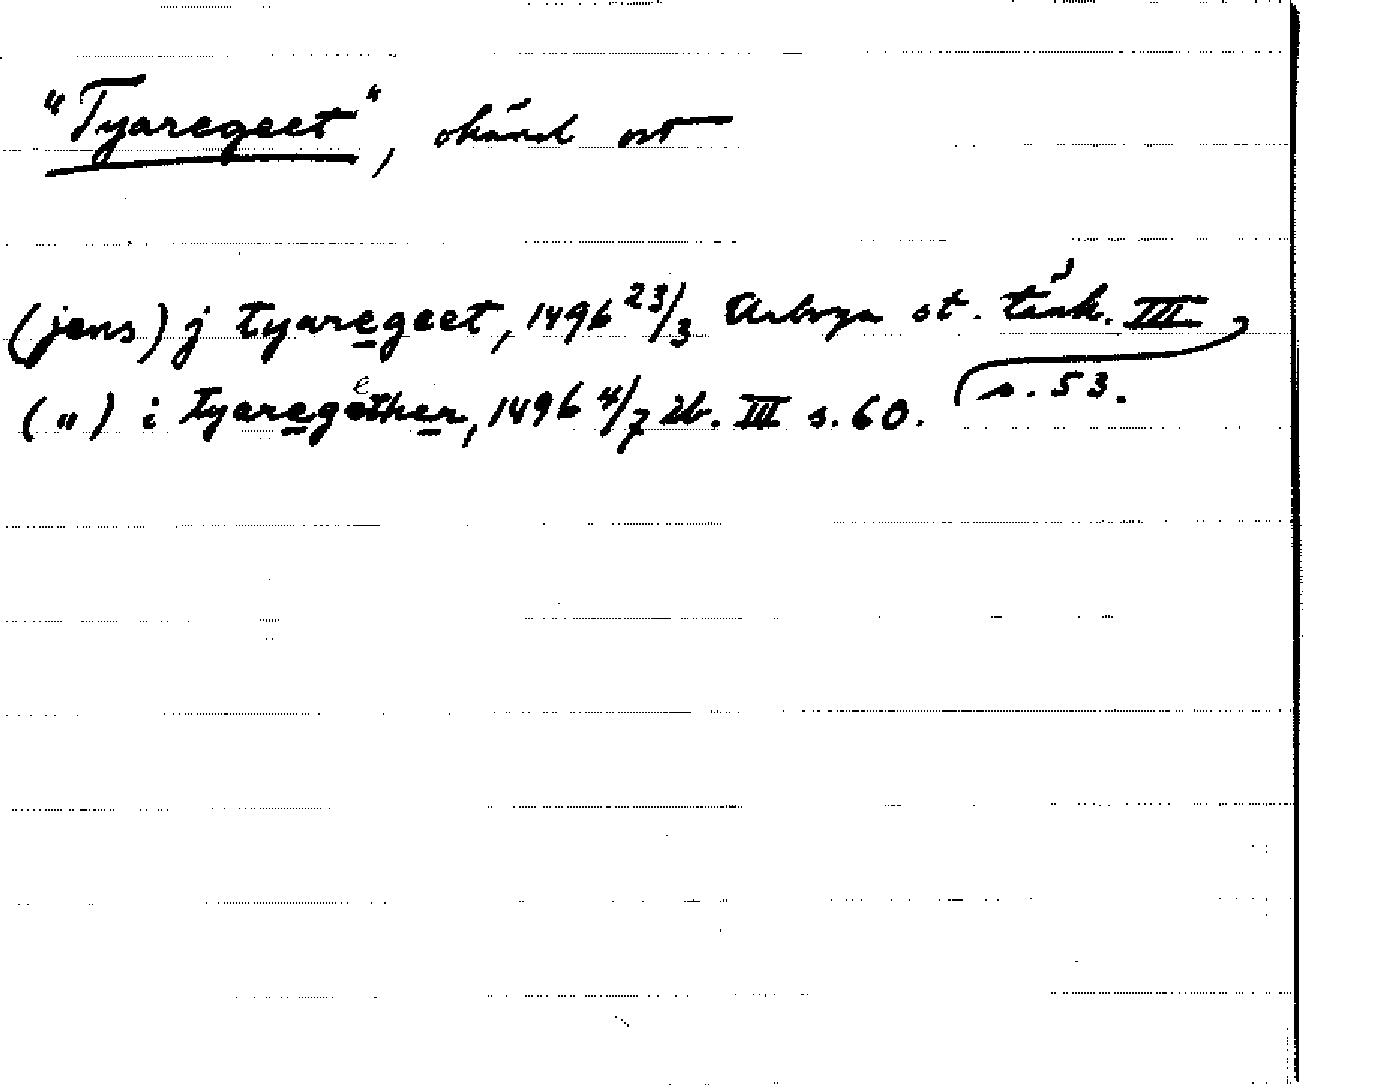 "Tyaregeet", okänd ort
(jens) j tyaregeet, 1496 23/3 Arboga st. tänk. III
s. 53.
(") i tyaregether, 1496 4/7 ib. III s. 60.